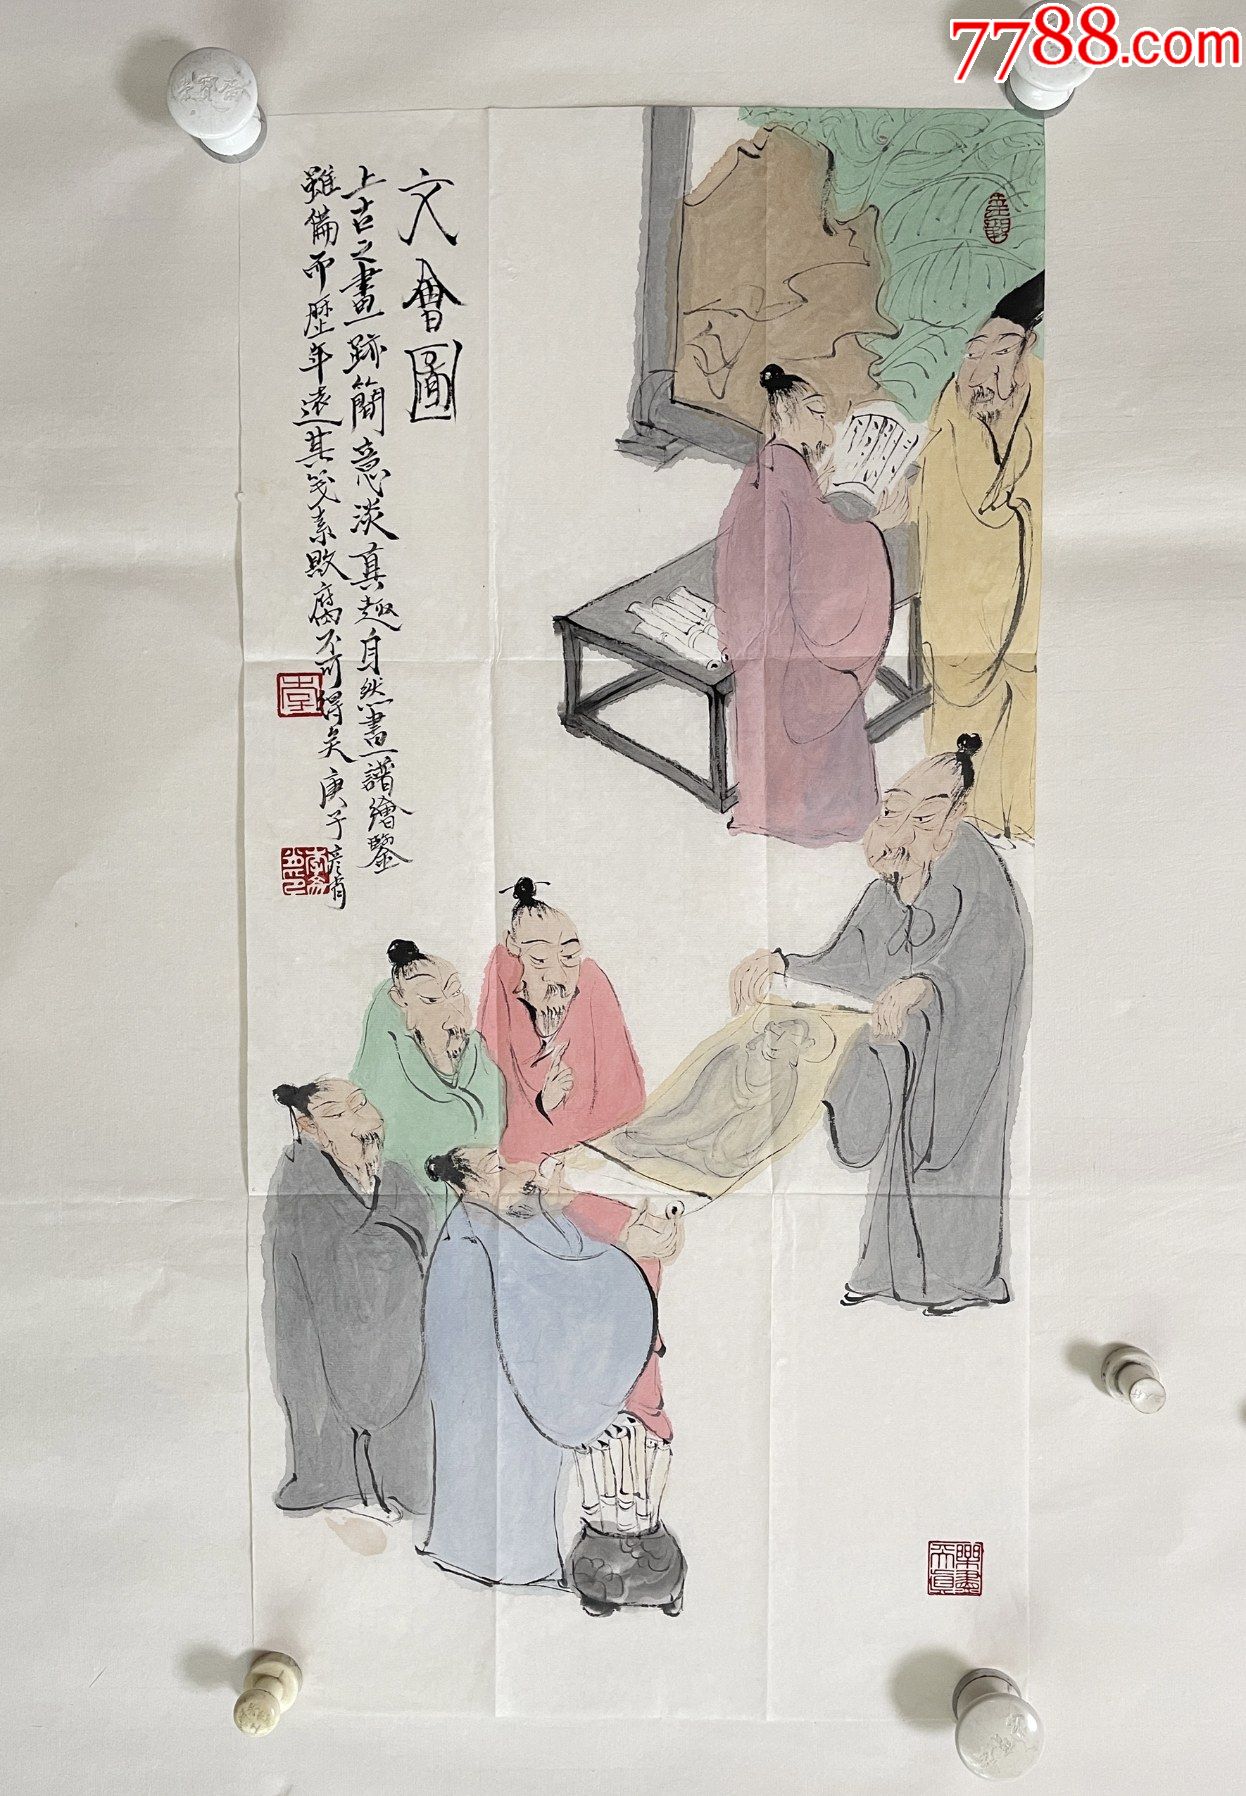 7788.com
文會圖
上古之畫跡簡意淡真趣自然畫譜繪鑒
雖備而歷年遠其箋素敗腐不可得矣庚子彦肖